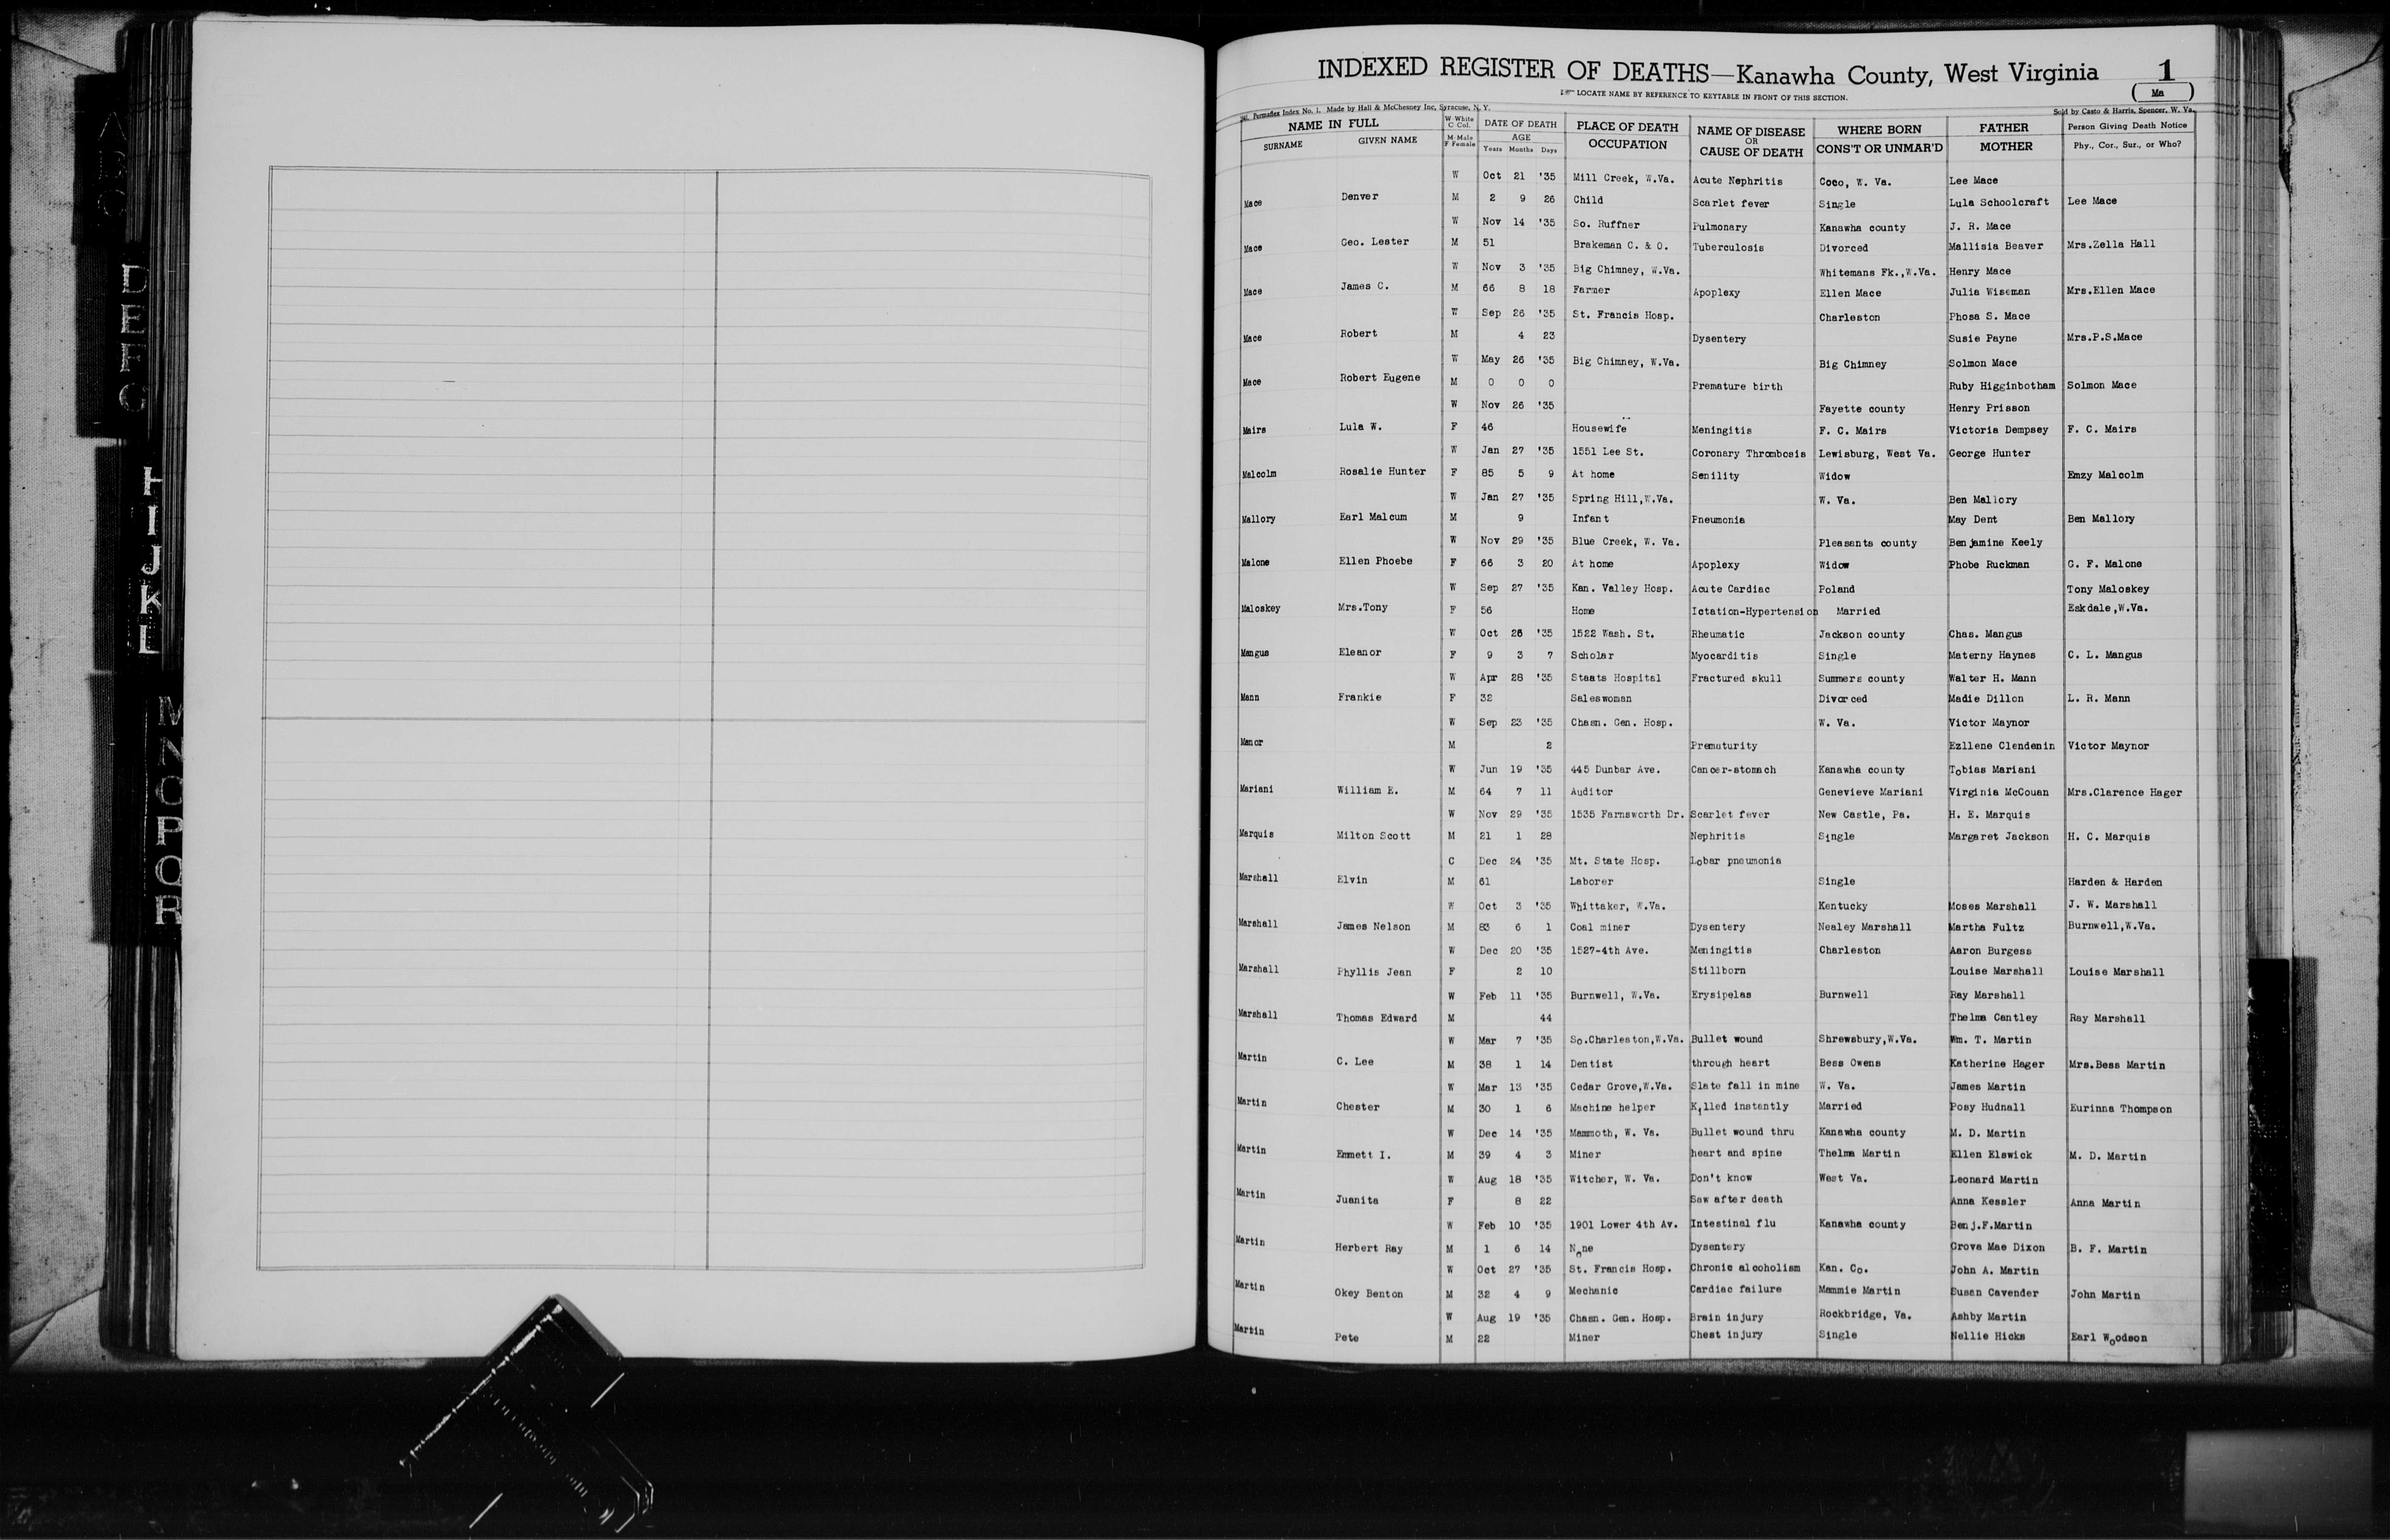 A
D
E
F
G
H
I
J
K
L
M
N
O
P
Q
R
INDEXED REGISTER OF DEATHS—Kanawha County, West Virginia 1
LOCATE NAME BY REFERENCE TO KEYTABLE IN FRONT OF THIS SECTION. Ma
Permaflex Index No. 1. Made by Hall & McChesney Inc, Syracuse, N. Y. Sold by Casto & Harris, Spencer, W. Va.
NAME IN FULL W White C Col. DATE OF DEATH PLACE OF DEATH NAME OF DISEASE OR CAUSE OF DEATH WHERE BORN FATHER Person Giving Death Notice
SURNAME GIVEN NAME M Male F Female AGE Years Months Days OCCUPATION CONS'T OR UNMAR'D MOTHER Phy., Cor., Sur., or Who?
W Oct 21 '35 Mill Creek, W.Va. Acute Nephritis Coco, W. Va. Lee Mace
Mace Denver M 2 9 26 Child Scarlet fever Single Lula Schoolcraft Lee Mace
W Nov 14 '35 So. Ruffner Pulmonary Kanawha county J. R. Mace
Mace Geo. Lester M 51 Brakeman C. & O. Tuberculosis Divorced Mallisia Beaver Mrs.Zella Hall
W Nov 3 '35 Big Chimney, W.Va. Whitemans Fk.,W.Va. Henry Mace
Mace James C. M 66 8 18 Farmer Apoplexy Ellen Mace Julia Wiseman Mrs.Ellen Mace
W Sep 26 '35 St. Francis Hosp. Charleston Phosa S. Mace
Mace Robert M 4 23 Dysentery Susie Payne Mrs.P.S.Mace
W May 26 '35 Big Chimney, W.Va. Big Chimney Solmon Mace
Mace Robert Eugene M 0 0 0 Premature birth Ruby Higginbotham Solmon Mace
W Nov 26 '35 Fayette county Henry Prisson
Mairs Lula W. F 46 Housewife Meningitis F. C. Mairs Victoria Dempsey F. C. Mairs
W Jan 27 '35 1551 Lee St. Coronary Thrombosis Lewisburg, West Va. George Hunter
Malcolm Rosalie Hunter F 85 5 9 At home Senility Widow Emzy Malcolm
W Jan 27 '35 Spring Hill,W.Va. W. Va. Ben Mallory
Mallory Earl Malcum M 9 Infant Pneumonia May Dent Ben Mallory
W Nov 29 '35 Blue Creek, W. Va. Pleasants county Benjamine Keely
Malone Ellen Phoebe F 66 3 20 At home Apoplexy Widow Phobe Ruckman G. F. Malone
W Sep 27 '35 Kan. Valley Hosp. Acute Cardiac Poland Tony Maloskey
Maloskey Mrs.Tony F 56 Home Ictation-Hypertension Married Eskdale,W.Va.
W Oct 26 '35 1522 Wash. St. Rheumatic Jackson county Chas. Mangus
Mangus Eleanor F 9 3 7 Scholar Myocarditis Single Materny Haynes C. L. Mangus
W Apr 28 '35 Staats Hospital Fractured skull Summers county Walter H. Mann
Mann Frankie F 32 Saleswoman Divorced Madie Dillon L. R. Mann
W Sep 23 '35 Chasn. Gen. Hosp. W. Va. Victor Maynor
Manor M 2 Prematurity Ezllene Clendenin Victor Maynor
W Jun 19 '35 445 Dunbar Ave. Cancer-stomach Kanawha county Tobias Mariani
Mariani William E. M 64 7 11 Auditor Genevieve Mariani Virginia McCouan Mrs.Clarence Hager
W Nov 29 '35 1535 Farnsworth Dr. Scarlet fever New Castle, Pa. H. E. Marquis
Marquis Milton Scott M 21 1 28 Nephritis Single Margaret Jackson H. C. Marquis
C Dec 24 '35 Mt. State Hosp. Lobar pneumonia
Marshall Elvin M 61 Laborer Single Harden & Harden
W Oct 3 '35 Whittaker, W.Va. Kentucky Moses Marshall J. W. Marshall
Marshall James Nelson M 83 6 1 Coal miner Dysentery Nealey Marshall Martha Fultz Burnwell,W.Va.
W Dec 20 '35 1527-4th Ave. Meningitis Charleston Aaron Burgess
Marshall Phyllis Jean F 2 10 Stillborn Louise Marshall Louise Marshall
W Feb 11 '35 Burnwell, W.Va. Erysipelas Burnwell Ray Marshall
Marshall Thomas Edward M 44 Thelma Cantley Ray Marshall
W Mar 7 '35 So.Charleston,W.Va. Bullet wound Shrewsbury,W.Va. Wm. T. Martin
Martin C. Lee M 38 1 14 Dentist through heart Bess Owens Katherine Hager Mrs.Bess Martin
W Mar 13 '35 Cedar Grove,W.Va. Slate fall in mine W. Va. James Martin
Martin Chester M 30 1 6 Machine helper Killed instantly Married Posy Hudnall Eurinna Thompson
W Dec 14 '35 Mammoth, W. Va. Bullet wound thru Kanawha county M. D. Martin
Martin Emmett I. M 39 4 3 Miner heart and spine Thelma Martin Ellen Elswick M. D. Martin
W Aug 18 '35 Witcher, W. Va. Don't know West Va. Leonard Martin
Martin Juanita F 8 22 Saw after death Anna Kessler Anna Martin
W Feb 10 '35 1901 Lower 4th Av. Intestinal flu Kanawha county Benj.F.Martin
Martin Herbert Ray M 1 6 14 None Dysentery Grova Mae Dixon B. F. Martin
W Oct 27 '35 St. Francis Hosp. Chronic alcoholism Kan. Co. John A. Martin
Martin Okey Benton M 32 4 9 Mechanic Cardiac failure Mammie Martin Susan Cavender John Martin
W Aug 19 '35 Chasn. Gen. Hosp. Brain injury Rockbridge, Va. Ashby Martin
Martin Pete M 22 Miner Chest injury Single Nellie Hicks Earl Woodson